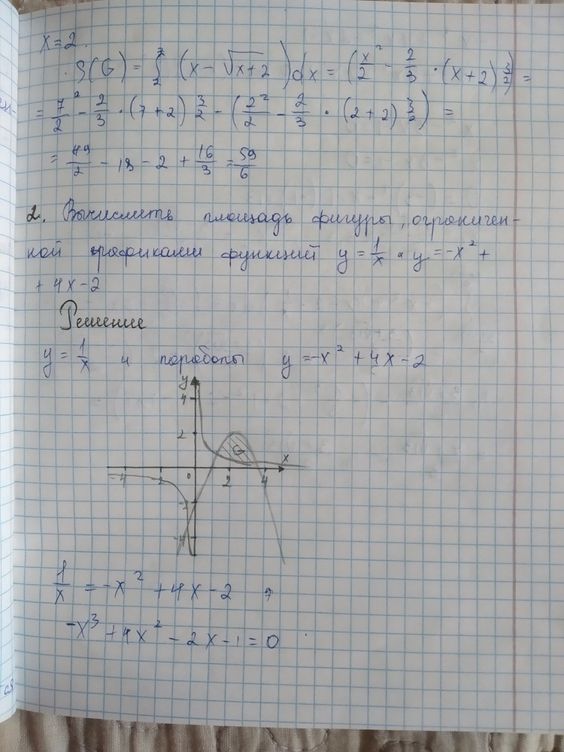 x=2.
S(G) = ∫₂⁷ (x - √(x+2)) dx = (x²/2 - 2/3 · (x+2) 3/2) =
= 7²/2 - 2/3 · (7+2) 3/2 - (2²/2 - 2/3 · (2+2) 3/2) =
= 49/2 - 18 - 2 + 16/3 = 59/6
2. Вычислить площадь фигуры, ограничен-
ной графиками функций y = 1/x и y = -x² +
+ 4x - 2
Решение
y = 1/x и параболы y = -x² + 4x - 2
y
4
2
G
x
-4
0
2
4
1/x = -x² + 4x - 2
-x³ + 4x² - 2x - 1 = 0